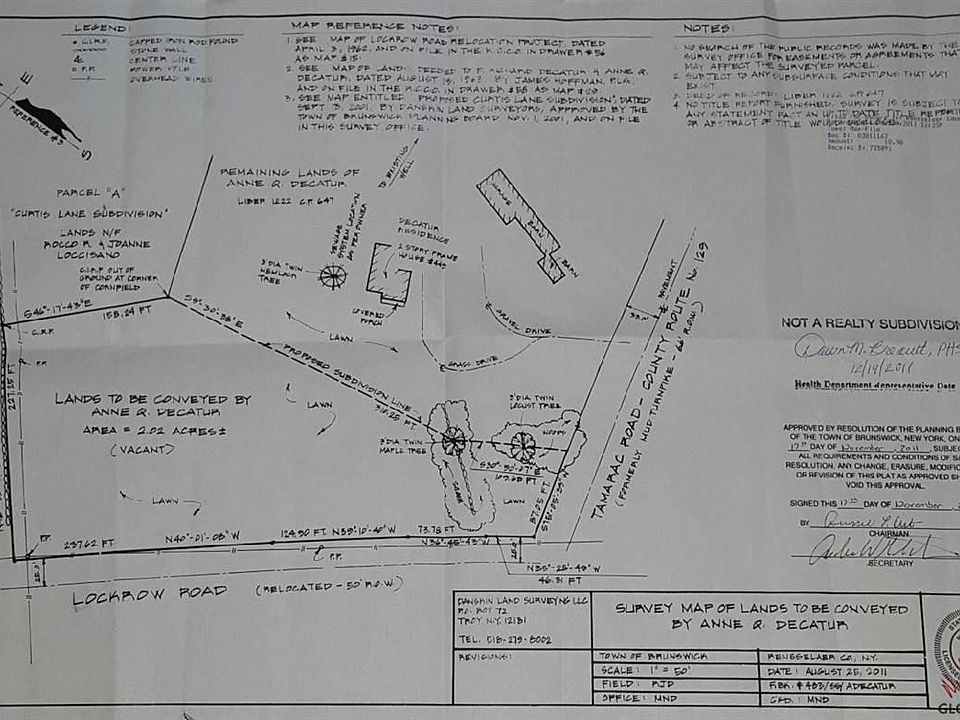 LEGEND:
C.I.R.F. CAPPED IRON ROD FOUND
STONE WALL
CENTER LINE
P.P. POWER POLE
OVERHEAD WIRES
MAP REFERENCE NOTES:
1. SEE MAP OF LOCKROW ROAD RELOCATION PROJECT, DATED
APRIL 3, 1962, AND ON FILE IN THE R.C.C.O. IN DRAWER
AS MAP #15.
2. SEE MAP OF LANDS DEEDED TO F. RICHARD DECATUR & ANNE Q.
DECATUR, DATED AUGUST 15, 1963, BY JAMES HOFFMAN, P.L.S.
AND ON FILE IN THE R.C.C.O. IN DRAWER AS MAP
3. SEE MAP ENTITLED "PROPOSED CURTIS LANE SUBDIVISION", DATED
SEPT. 3, 2001, BY DANSKIN LAND SURVEYORS, APPROVED BY THE
TOWN OF BRUNSWICK PLANNING BOARD NOV. 1, 2001, AND ON FILE
IN THIS SURVEY OFFICE.
NOTES:
1. NO SEARCH OF THE PUBLIC RECORDS WAS MADE BY THE
SURVEY OFFICE FOR EASEMENTS OR AGREEMENTS THAT
MAY AFFECT THE SURVEYED PARCEL.
2. SUBJECT TO ANY SUBSURFACE CONDITIONS THAT MAY
EXIST
3. DEED OF RECORD: LIBER 1222 C.P. 647
4. NO TITLE REPORT FURNISHED. SURVEY IS SUBJECT TO
ANY STATEMENT FACT AN UP TO DATE TITLE REPORT
OR ABSTRACT OF TITLE WOULD DISCLOSE
E
S
REFERENCE #3
PARCEL "A"
"CURTIS LANE SUBDIVISION"
LANDS N/F
ROCCO R. & JOANNE
LOCCISANO
C.I.R.F. OUT OF
GROUND AT CORNER
OF CORNFIELD
REMAINING LANDS OF
ANNE Q. DECATUR
LIBER 1222 C.P. 647
TO EXISTING
WELL
SEWAGE
SYSTEM LOCATION
AS PER OWNER
DECATUR
RESIDENCE
2 STORY FRAME
HOUSE #445
3' DIA TWIN
HEMLOCK
TREE
COVERED
PORCH
GARAGE
BARN
BARN
GRAVEL DRIVE
GRASS DRIVE
LAWN
33'±
PAVEMENT
TAMARAC ROAD - COUNTY ROUTE No 129
(FORMERLY HOLD TURNPIKE - 66' R.O.W.)
S46°-17'-43"E
158.24 FT
C.I.R.F.
P.P.
227.15 FT
PROPOSED SUBDIVISION LINE
316.25 FT
LANDS TO BE CONVEYED BY
ANNE Q. DECATUR
AREA = 2.02 ACRES±
(VACANT)
LAWN
LAWN
3' DIA TWIN
MAPLE TREE
3' DIA TWIN
LOCUST TREE
WOODS
LAWN
237.62 FT
N40°-01'-08"W
124.90 FT
N39°-10'-40"W
73.78 FT
N36°-45'-43"W
N35°-25'-49"W
46.31 FT
25.0'
25.0'
P.P.
LOCKROW ROAD (RELOCATED - 50' R.O.W.)
NOT A REALTY SUBDIVISION
12/19/2011
Health Department Representative Date
APPROVED BY RESOLUTION OF THE PLANNING B
OF THE TOWN OF BRUNSWICK, NEW YORK, ON
17th DAY OF November, 2011, SUBJEC
ALL REQUIREMENTS AND CONDITIONS OF SA
RESOLUTION, ANY CHANGE, ERASURE, MODIFIC
OR REVISION OF THIS PLAT AS APPROVED SH
VOID THIS APPROVAL.
SIGNED THIS 17th DAY OF
BY
CHAIRMAN
SECRETARY
DANSKIN LAND SURVEYING LLC
P.O. BOX 72
TROY N.Y. 12181
TEL. 518-279-8002
REVISIONS:
SURVEY MAP OF LANDS TO BE CONVEYED
BY ANNE Q. DECATUR
TOWN OF BRUNSWICK
RENSSELAER CO., N.Y.
SCALE: 1" = 50'
DATE: AUGUST 25, 2011
FIELD: RJD
OFFICE: MND
CKD.: MND
GLO